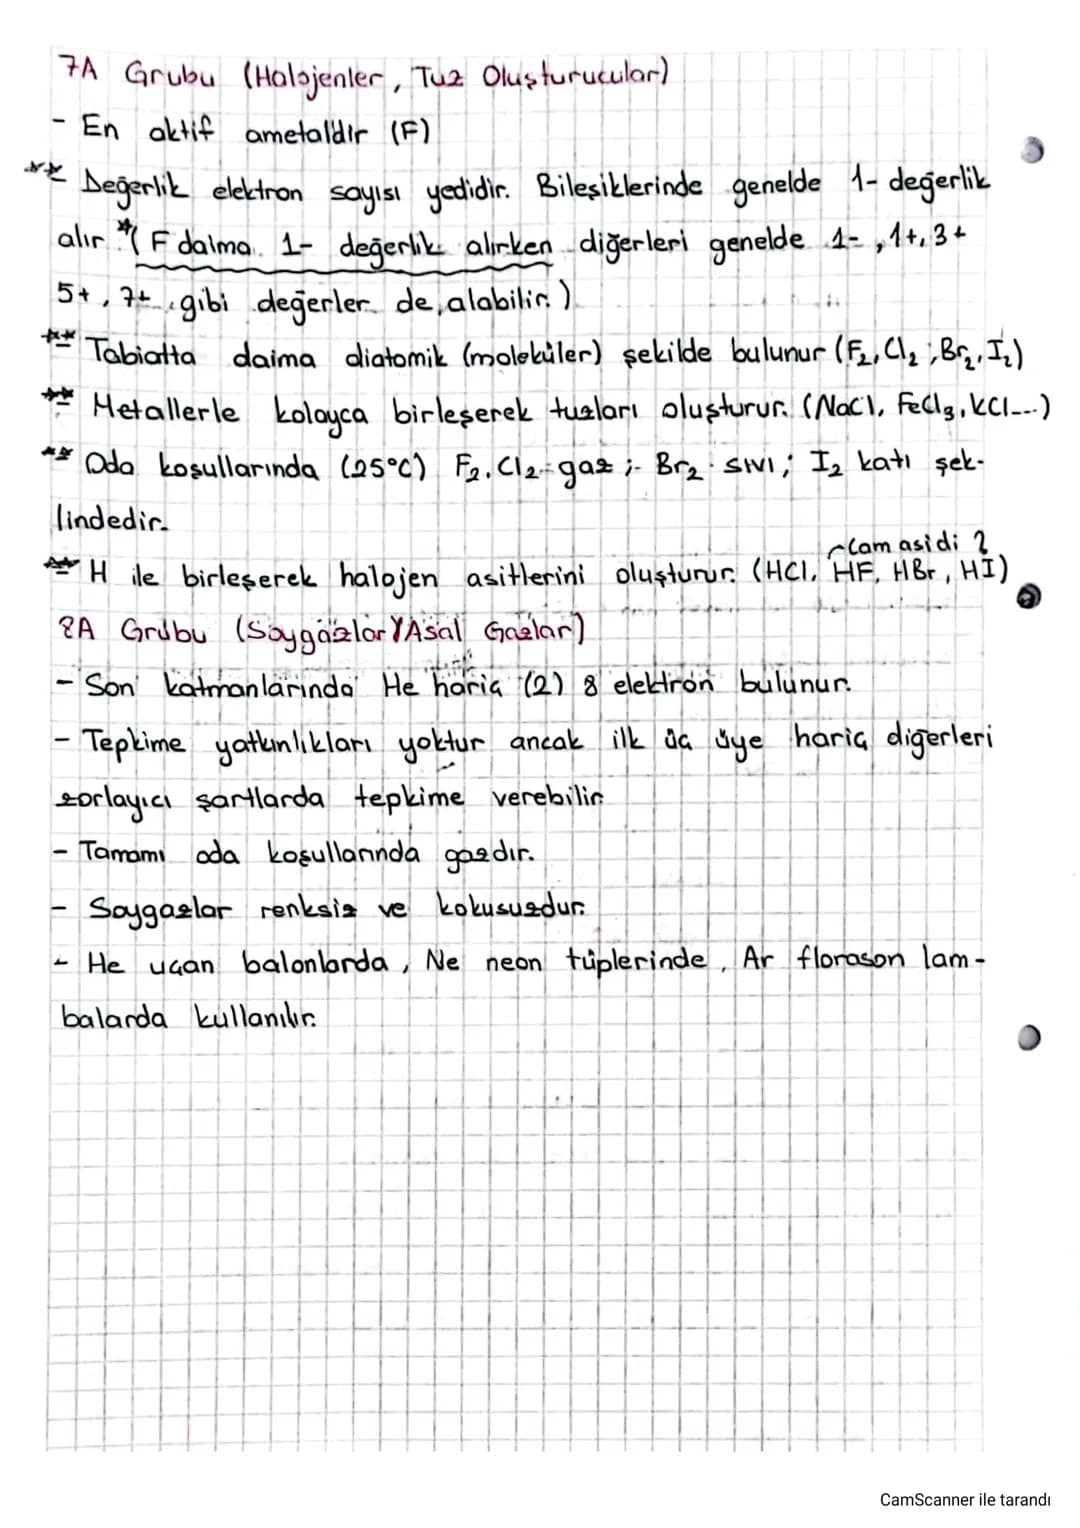 7A Grubu (Halojenler, Tuz Oluşturucular)
- En aktif ametaldir (F)
** Değerlik elektron sayısı yedidir. Bileşiklerinde genelde 1- değerlik
alır *( F daima 1- değerlik alırken diğerleri genelde 1-, 1+, 3+
5+, 7+ gibi değerler de alabilir.)
** Tabiatta daima diatomik (moleküler) şekilde bulunur (F₂, Cl₂, Br₂, I₂)
** Metallerle kolayca birleşerek tuzları oluşturur. (NaCl, FeCl₃, KCl...)
** Oda koşullarında (25°C) F₂, Cl₂ gaz ; Br₂ sıvı ; I₂ katı şek-
lindedir.
Cam asidi ?
** H ile birleşerek halojen asitlerini oluşturur. (HCl, HF, HBr, HI)
8A Grubu (Soygazlar Asal Gazlar)
- Son katmanlarında He hariç (2) 8 elektron bulunur.
- Tepkime yatkınlıkları yoktur ancak ilk üç üye hariç diğerleri
zorlayıcı şartlarda tepkime verebilir
- Tamamı oda koşullarında gazdır.
- Soygazlar renksiz ve kokusuzdur.
- He uçan balonlarda, Ne neon tüplerinde, Ar florason lam-
balarda kullanılır.
CamScanner ile tarandı